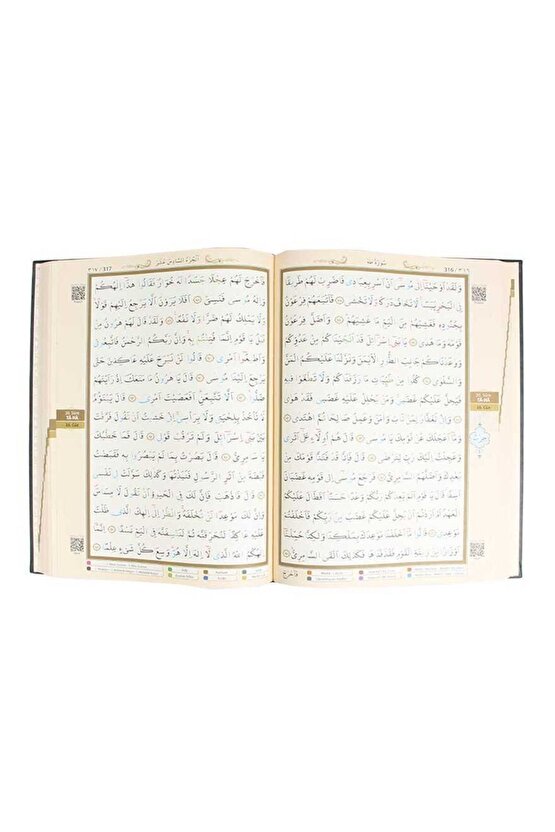 سُورَةُ طٰهٰ
316 / ٣١٦
وَلَقَدْ اَوْحَيْنَٓا اِلٰى مُوسٰٓى اَنْ اَسْرِ بِعِبَاد۪ى فَاضْرِبْ لَهُمْ طَر۪يقًا
فِى الْبَحْرِ يَبَسًا لَا تَخَافُ دَرَكًا وَلَا تَخْشٰى فَاَتْبَعَهُمْ فِرْعَوْنُ
بِجُنُودِه۪ فَغَشِيَهُمْ مِنَ الْيَمِّ مَا غَشِيَهُمْ وَاَضَلَّ فِرْعَوْنُ
قَوْمَهُ وَمَا هَدٰى يَا بَن۪ٓى اِسْرَٓاء۪يلَ قَدْ اَنْجَيْنَاكُمْ مِنْ عَدُوِّكُمْ
وَوٰعَدْنَاكُمْ جَانِبَ الطُّورِ الْاَيْمَنَ وَنَزَّلْنَا عَلَيْكُمُ الْمَنَّ
وَالسَّلْوٰى كُلُوا مِنْ طَيِّبَاتِ مَا رَزَقْنَاكُمْ وَلَا تَطْغَوْا ف۪يهِ
فَيَحِلَّ عَلَيْكُمْ غَضَب۪ى وَمَنْ يَحْلِلْ عَلَيْهِ غَضَب۪ى فَقَدْ هَوٰى
وَاِنّ۪ى لَغَفَّارٌ لِمَنْ تَابَ وَاٰمَنَ وَعَمِلَ صَالِحًا ثُمَّ اهْتَدٰى
وَمَٓا اَعْجَلَكَ عَنْ قَوْمِكَ يَا مُوسٰى قَالَ هُمْ اُو۬لَٓاءِ عَلٰٓى اَثَر۪ى
وَعَجِلْتُ اِلَيْكَ رَبِّ لِتَرْضٰى قَالَ فَاِنَّا قَدْ فَتَنَّا قَوْمَكَ مِنْ
بَعْدِكَ وَاَضَلَّهُمُ السَّامِرِىُّ فَرَجَعَ مُوسٰٓى اِلٰى قَوْمِه۪ غَضْبَانَ
اَسِفًا قَالَ يَا قَوْمِ اَلَمْ يَعِدْكُمْ رَبُّكُمْ وَعْدًا حَسَنًا اَفَطَالَ عَلَيْكُمُ
الْعَهْدُ اَمْ اَرَدْتُمْ اَنْ يَحِلَّ عَلَيْكُمْ غَضَبٌ مِنْ رَبِّكُمْ فَاَخْلَفْتُمْ
مَوْعِد۪ى قَالُوا مَٓا اَخْلَفْنَا مَوْعِدَكَ بِمَلْكِنَا وَلٰكِنَّا حُمِّلْنَٓا
اَوْزَارًا مِنْ ز۪ينَةِ الْقَوْمِ فَقَذَفْنَاهَا فَكَذٰلِكَ اَلْقَى السَّامِرِىُّ
فَاَخْرَجَ
20. Sûre
TÂ-HÂ
16. Cüz
اَلْجُزْءُ السَّادِسَ عَشَرَ
٣١٧ / 317
فَاَخْرَجَ لَهُمْ عِجْلًا جَسَدًا لَهُ خُوَارٌ فَقَالُوا هٰذَٓا اِلٰهُكُمْ
وَاِلٰهُ مُوسٰى فَنَسِىَ اَفَلَا يَرَوْنَ اَلَّا يَرْجِعُ اِلَيْهِمْ قَوْلًا
وَلَا يَمْلِكُ لَهُمْ ضَرًّا وَلَا نَفْعًا وَلَقَدْ قَالَ لَهُمْ هٰرُونُ مِنْ
قَبْلُ يَا قَوْمِ اِنَّمَا فُتِنْتُمْ بِه۪ وَاِنَّ رَبَّكُمُ الرَّحْمٰنُ فَاتَّبِعُون۪ى
وَاَط۪يعُٓوا اَمْر۪ى قَالُوا لَنْ نَبْرَحَ عَلَيْهِ عَاكِف۪ينَ حَتّٰى
يَرْجِعَ اِلَيْنَا مُوسٰى قَالَ يَا هٰرُونُ مَا مَنَعَكَ اِذْ رَاَيْتَهُمْ
ضَلُّوا اَلَّا تَتَّبِعَنِ اَفَعَصَيْتَ اَمْر۪ى قَالَ يَبْنَؤُ۬مَّ
لَا تَأْخُذْ بِلِحْيَت۪ى وَلَا بِرَأْس۪ى اِنّ۪ى خَش۪يتُ اَنْ تَقُولَ فَرَّقْتَ
بَيْنَ بَن۪ٓى اِسْرَٓاء۪يلَ وَلَمْ تَرْقُبْ قَوْل۪ى قَالَ فَمَا خَطْبُكَ
يَا سَامِرِىُّ قَالَ بَصُرْتُ بِمَا لَمْ يَبْصُرُوا بِه۪ فَقَبَضْتُ
قَبْضَةً مِنْ اَثَرِ الرَّسُولِ فَنَبَذْتُهَا وَكَذٰلِكَ سَوَّلَتْ ل۪ى نَفْس۪ى
قَالَ فَاذْهَبْ فَاِنَّ لَكَ فِى الْحَيٰوةِ اَنْ تَقُولَ لَا مِسَاسَ
وَاِنَّ لَكَ مَوْعِدًا لَنْ تُخْلَفَهُ وَانْظُرْ اِلٰٓى اِلٰهِكَ الَّذ۪ى ظَلْتَ
عَلَيْهِ عَاكِفًا لَنُحَرِّقَنَّهُ ثُمَّ لَنَنْسِفَنَّهُ فِى الْيَمِّ نَسْفًا اِنَّمَٓا
اِلٰهُكُمُ اللّٰهُ الَّذ۪ى لَٓا اِلٰهَ اِلَّا هُوَ وَسِعَ كُلَّ شَىْءٍ عِلْمًا
20. Sûre
TÂ-HÂ
16. Cüz